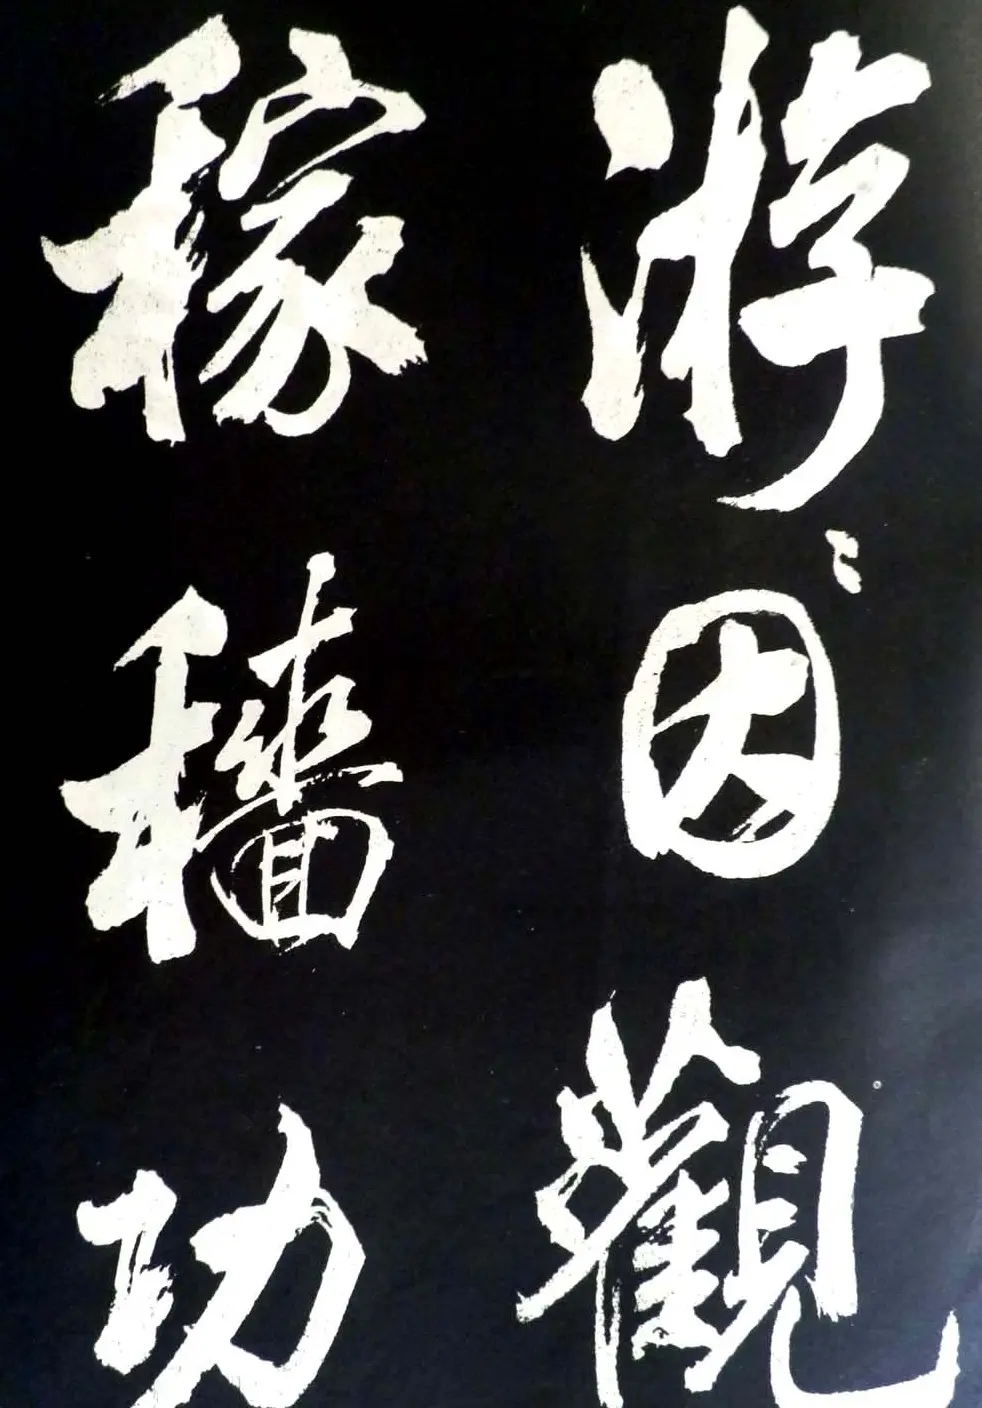 游因觀
稼穡功